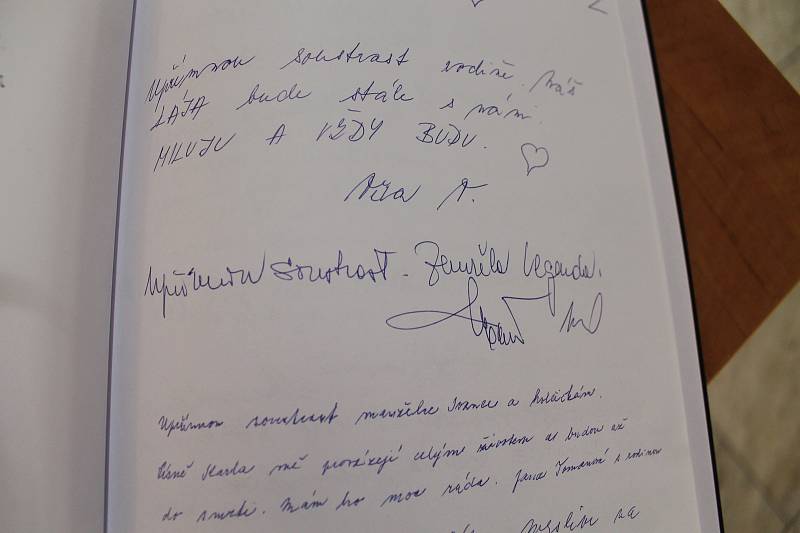 Upřímnou soustrast rodině. Náš
LÁĎA bude stále s námi.
MILUJU A VŽDY BUDU.
Upřímnou soustrast. Zemřela legenda.
Upřímnou soustrast manželce Ivance a holčičkám.
Písně Karla mě provázejí celým životem a budou až
do smrti. Mám ho moc ráda. Jana Tomanová s rodinou
myslíme na